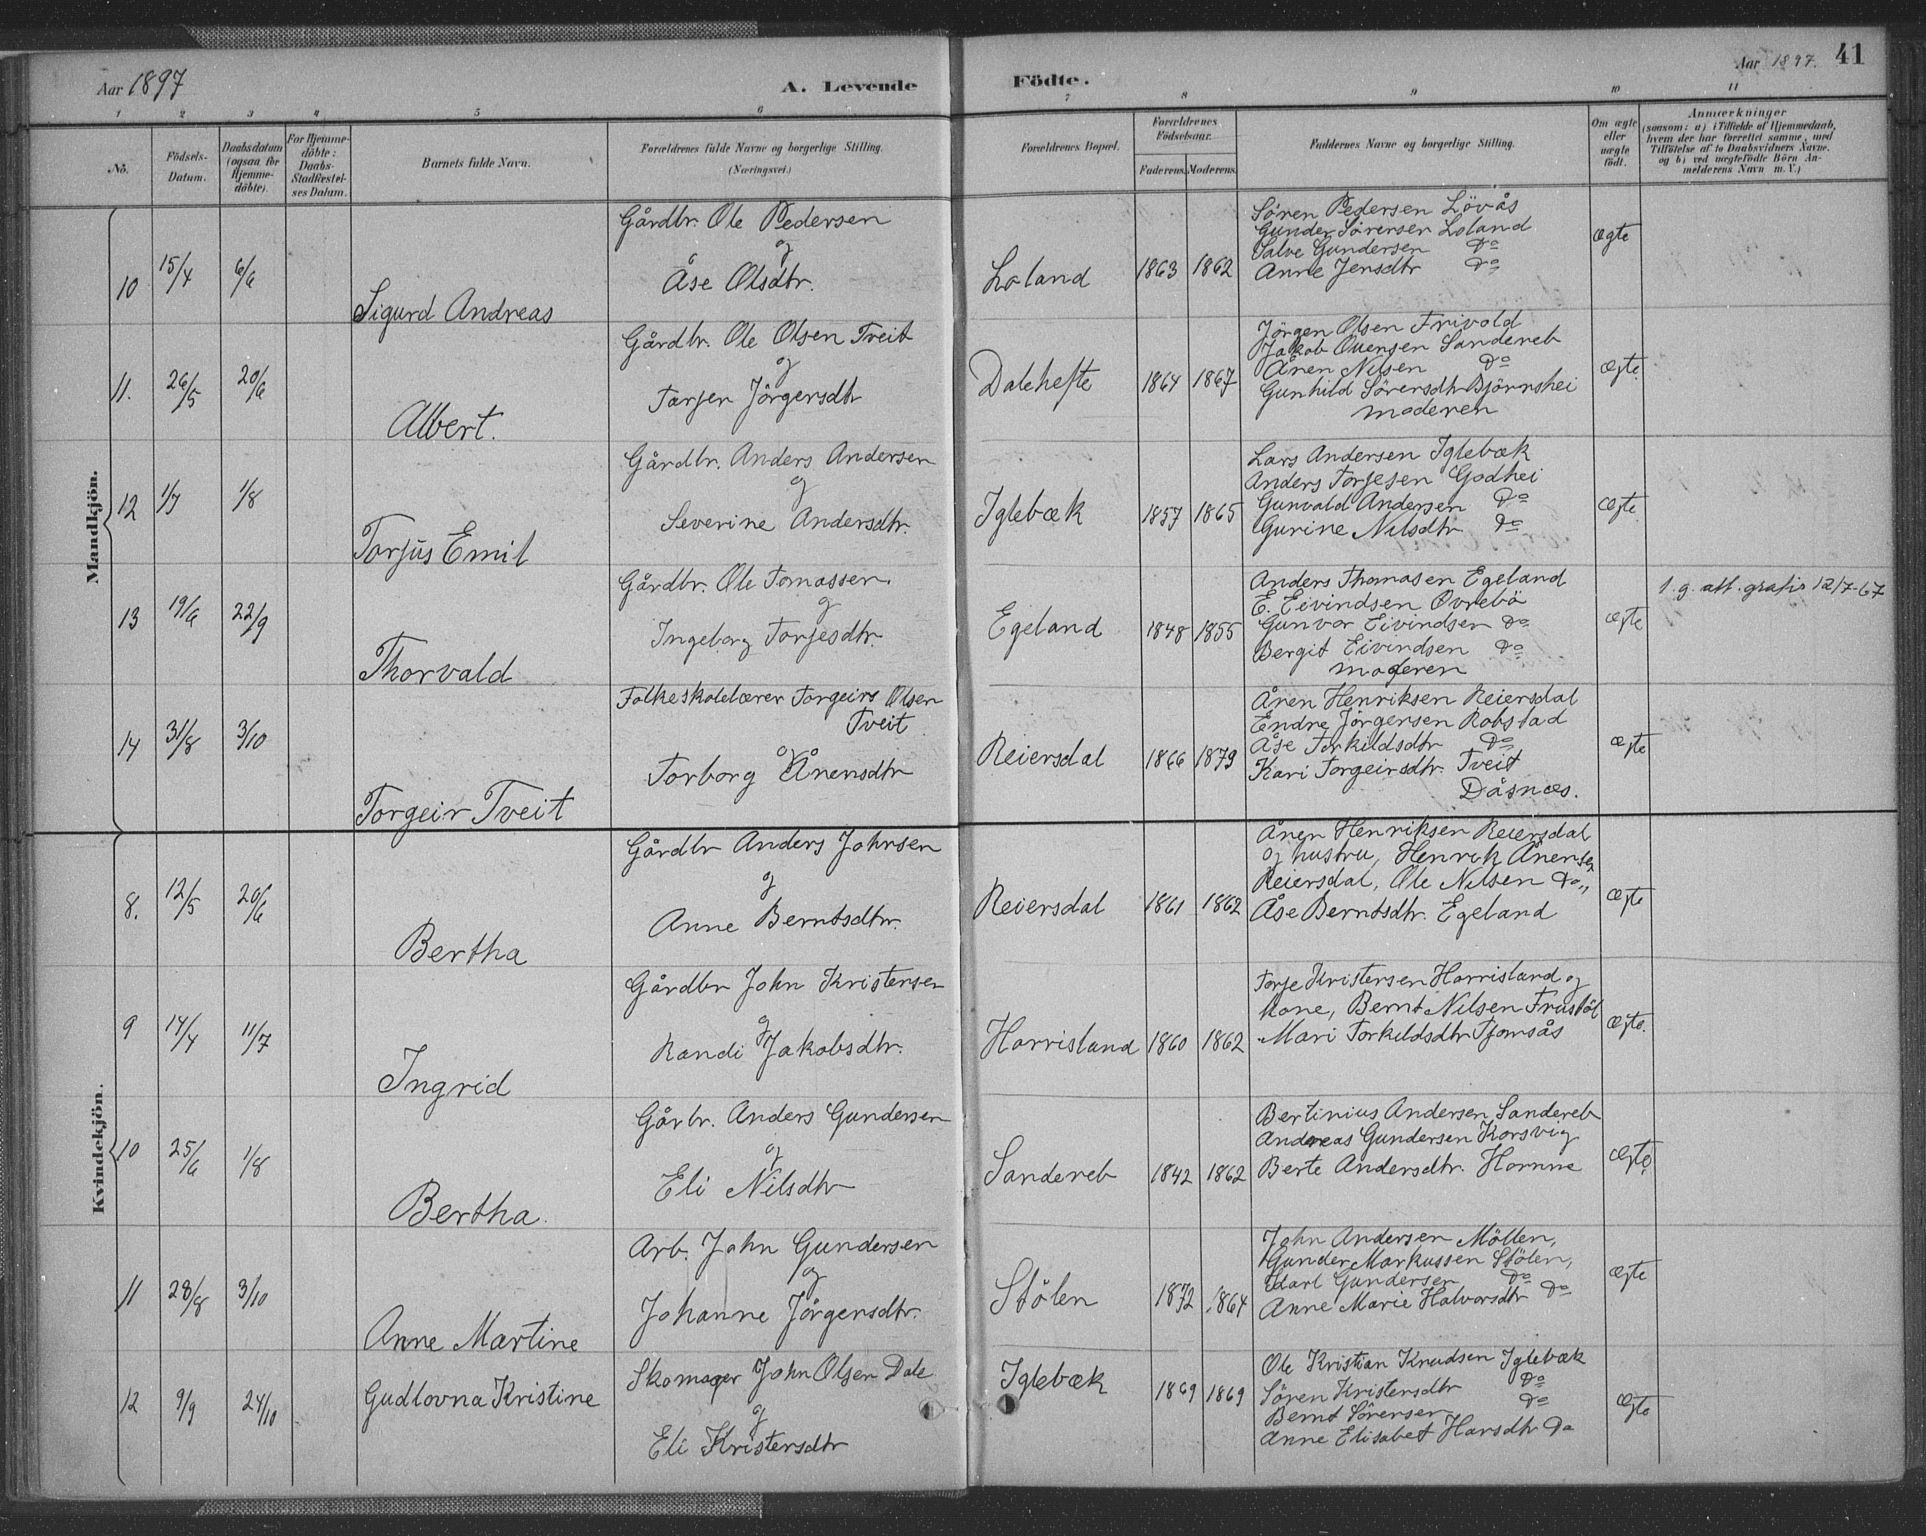 Aar 1897
A. Levende Födte.
Aar 1897. 41
1 2 3 4 5 6 7 8 9 10 11
No. Födsels-Datum. Daabsdatum (ogsaa for Hjemmedöbte). For Hjemmedöbte: Daabs-Stadfæstelses Datum. Barnets fulde Navn. Forældrenes fulde Navne og borgerlige Stilling. (Næringsvei.) Forældrenes Bopæl. Forældrenes Födselsaar. Faderens. Moderens. Faddernes Navne og borgerlige Stilling. Om ægte eller uægte födt. Anmærkninger (saasom: a) i Tilfælde af Hjemmedaab, hvem der har forrettet samme, med Tilföielse af to Daabsvidners Navne, og b) ved uægtefödte Börn Anmelderens Navn m. V.)
Mandkjön.
10 15/4 6/6 Sigurd Andreas
Gårdbr. Ole Pedersen
og
Åse Olsdtr.
Loland 1863 1862
Søren Pedersen Lövås
Gunder Sörensen Loland
Salve Gundersen Do
Anne Jensdtr Do
ægte
11. 26/5 20/6 Albert.
Gårdbr. Ole Olsen Tveit
og
Tarjer Jörgensdtr
Dalehefte 1864 1867
Jörgen Olsen Frivold
Jakob Ouensen Sandereb
Ånen Nilsen Do
Gunhild Sörensdtr Björnshei
moderen
Ægte.
12 1/7 1/8 Torjus Emil
Gårdbr. Anders Andersen
og
Severine Andersdtr.
Iglebæk 1857 1865
Lars Andersen Iglebæk
Anders Torjesen Godhei
Gunvald Andersen Do
Gurine Nilsdtr Do
Ægte
13 19/6 22/9 Thorvald
Gårdbr. Ole Tomassen.
og
Ingeborg Torjesdtr.
Egeland 1848 1855
Anders Thomasen Egeland
E. Eivindsen Ovrebö
Gunvor Eivindsen Do
Bergit Eivindsen Do
moderen
Ægte
1. g. att. gratis 12/7-67
14 31/8 3/10 Torgeir Tveit
Folkeskolelærer Torgeirs Olsen
Tveit
og
Torborg Ånensdtr
Reiersdal 1866 1879
Ånen Henriksen Reiersdal
Endre Jörgensen Robstad
Åse Torkildsdtr Do
Kari Torgeirsdtr. Tveit
Dåsnæs.
Ægte
Kvindekjön.
8. 12/5 20/6 Bertha
Gårdbr Anders Johnsen
og
Anne Berntsdtr.
Reiersdal 1861 1862
Ånen Henriksen Reiersdal
og hustru, Henrik Ånensen
Reiersdal, Ole Nilsen Do,,
Åse Berntsdtr. Egeland
Ægte
9 14/4 11/7 Ingrid
Gårdbr John Kristensen
og
Randi Jakobsdtr.
Harrisland 1860 1862
Torje Kristensen Harrisland og
kone, Bernt Nilsen Frustöl
Mari Torkildsdtr Tjomsås
Ægte.
10 25/6 1/8 Bertha.
Gårbr. Anders Gundersen
og
Eli Nilsdtr
Sandereb 1842 1862
Bertinius Andersen Sandereb
Andreas Gundersen Korsvig
Berte Andersdtr. Hornne
Ægte
11 28/8 3/10 Anne Martine
Arb. John Gundersen
og
Johanne Jörgensdtr.
Stölen 1872 1864
John Andersen Möllen,
Gunder Markussen Stölen,
Karl Gundersen Do
Anne Marie Halvorsdtr Do
Ægte
12 9/9 24/10 Gudlovna Kristine
Skomager John Olsen Dale
og
Eli Kristensdtr
Iglebæk 1869 1869
Ole Kristian Knudsen Iglebæk
Sören Kristensdtr Do
Bernt Sörensen Do
Anne Elisabet Hansdtr Do
Ægte